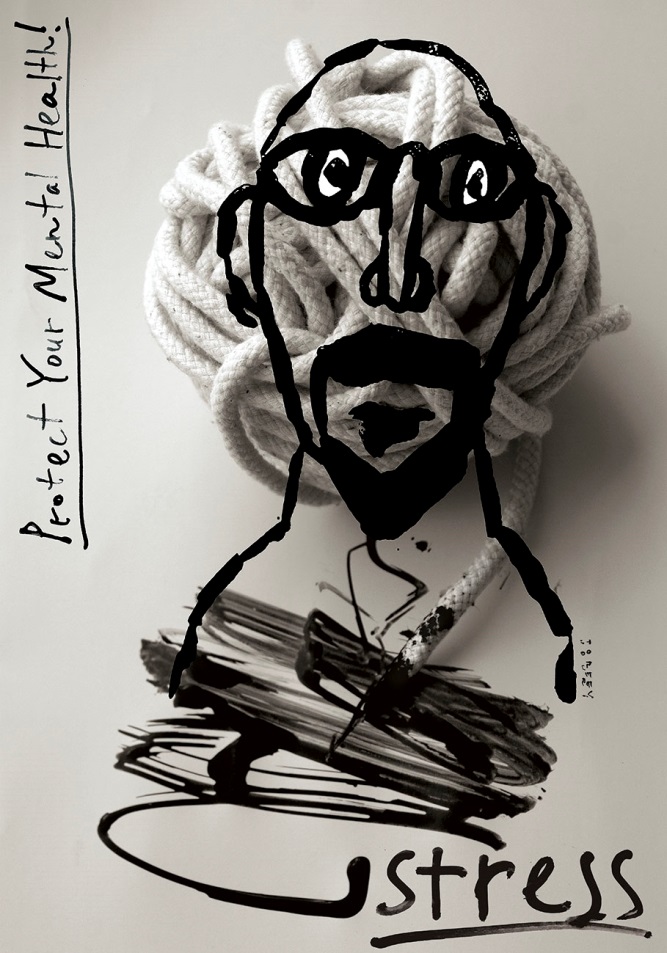 Protect Your Mental Health!
stress